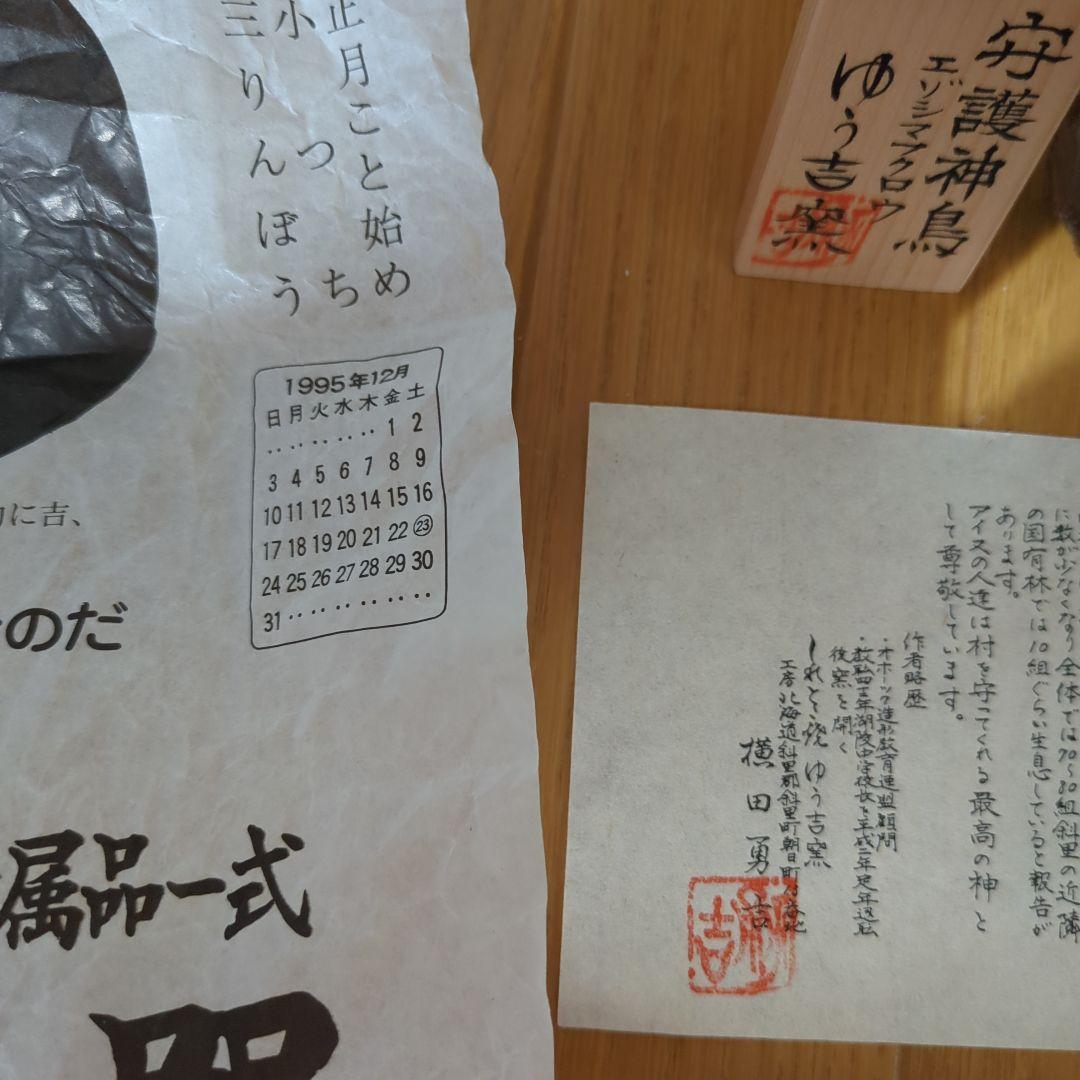 正月こと始め
小つち
三りんぼう
1995年12月
日月火水木金土
‥ ‥ ‥ ‥ ‥ 1 2
3 4 5 6 7 8 9
10 11 12 13 14 15 16
17 18 19 20 21 22 23
24 25 26 27 28 29 30
31 ‥ ‥ ‥ ‥ ‥ ‥
に吉、
のだ
属品一式
守護神鳥
エゾシマフクロウ
ゆう吉窯
に数が少なくなり全体では70~80組斜里の近隣
の国有林では10組ぐらい生息していると報告が
あります。
アイヌの人達は村を守ってくれる最高の神と
して尊敬しています。
作者略歴
・オホーツク造形教育連盟顧問
・教職四十年湖陵中学校長を平成二年定年退職
後窯を開く
しれとこ焼ゆう吉窯
工房北海道斜里郡斜里町朝日町
横田勇吉